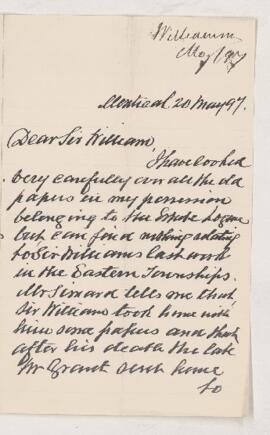 May 1897
Montreal 20 May 97.
Dear Sir William
I have looked
very carefully over all the old
papers in my possession
belonging to the Estate Logan
but can find nothing relating
to Sir Williams last work
in the Eastern Townships.
Mr Simard tells me that
Sir William took home with
him some papers and that
after his death the late
Mr Grant sent home
to